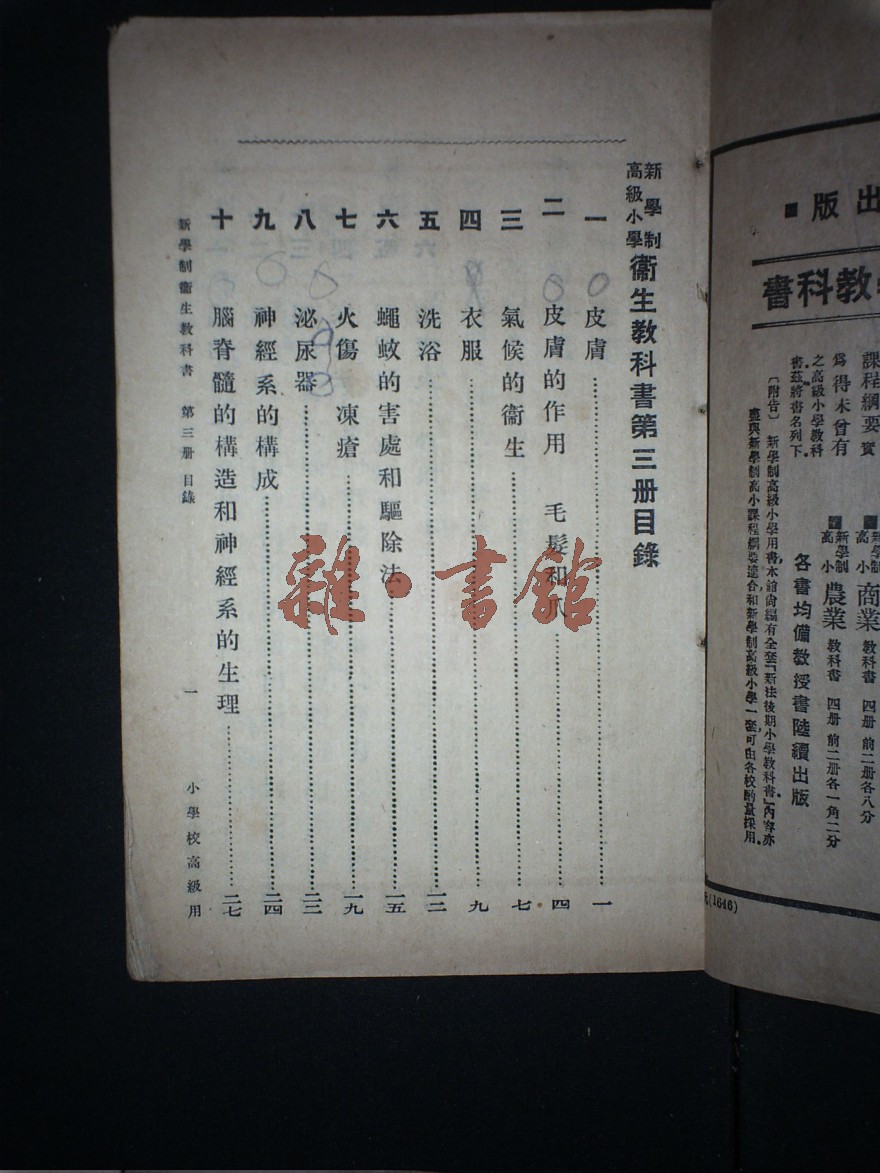 出版■
教科書
課程綱要實
爲得未曾有
之高級小學教科
書茲將書名列下
〔附告〕新學制高級小學用書本館尙編有全套「新法後期小學教科書」內容亦
盡與新學制高小課程綱要適合和新學制高級小學一套可由各校酌量採用
新學制高小商業教科書 四册 前二册各八分
新學制高小農業教科書 四册 前二册各一角二分
各書均備教授書陸續出版
(1646)
新學制高級小學衞生教科書第三册目錄
一 皮膚……一
二 皮膚的作用 毛髮和爪……四
三 氣候的衞生……七
四 衣服……九
五 洗浴……一二
六 蠅蚊的害處和驅除法……一五
七 火傷 凍瘡……一九
八 泌尿器……二三
九 神經系的構成……二四
十 腦脊髓的構造和神經系的生理……二七
新學制衞生教科書 第三册 目錄 一 小學校高級用
雜·書館